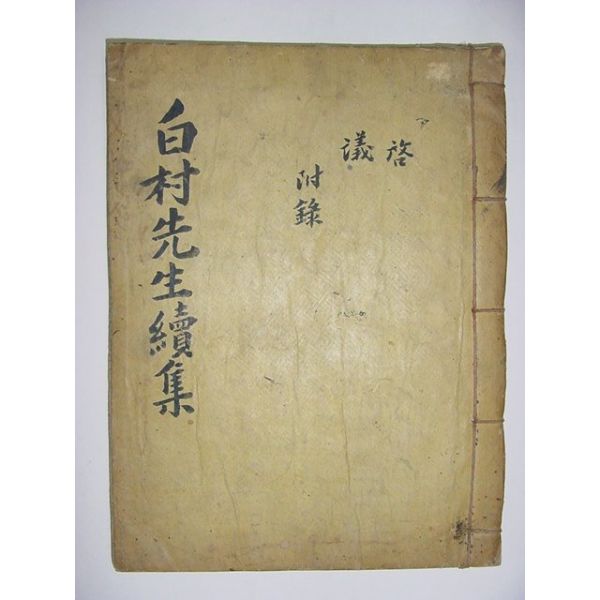 白村先生續集
啓
議
附錄